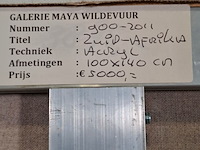 GALERIE MAYA WILDEVUUR
Nummer : 900-2011
Titel : Zuid-AFRIKA
Techniek : Acryl
Afmetingen : 100x140 cm
Prijs : €5000,=